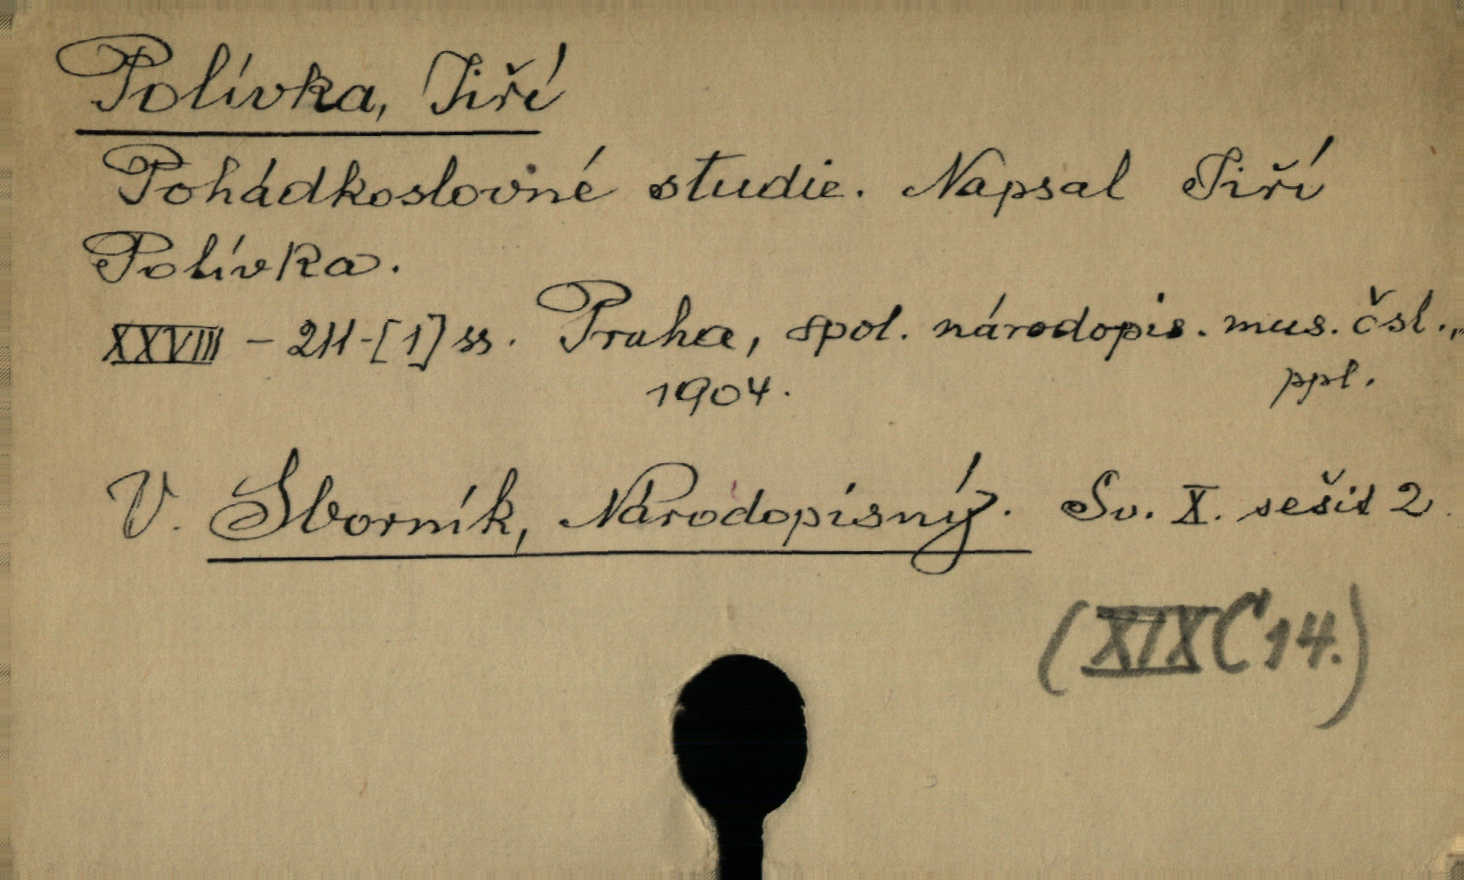 Polívka, Jiří
Pohádkoslovné studie. Napsal Jiří
Polívka.
XXVIII – 211-[1] ss. Praha, spol. národopis. mus. čsl.,
1904. ppl.
V. Sborník, Národopisný. Sv. X. sešit 2.
(XIX C 14.)